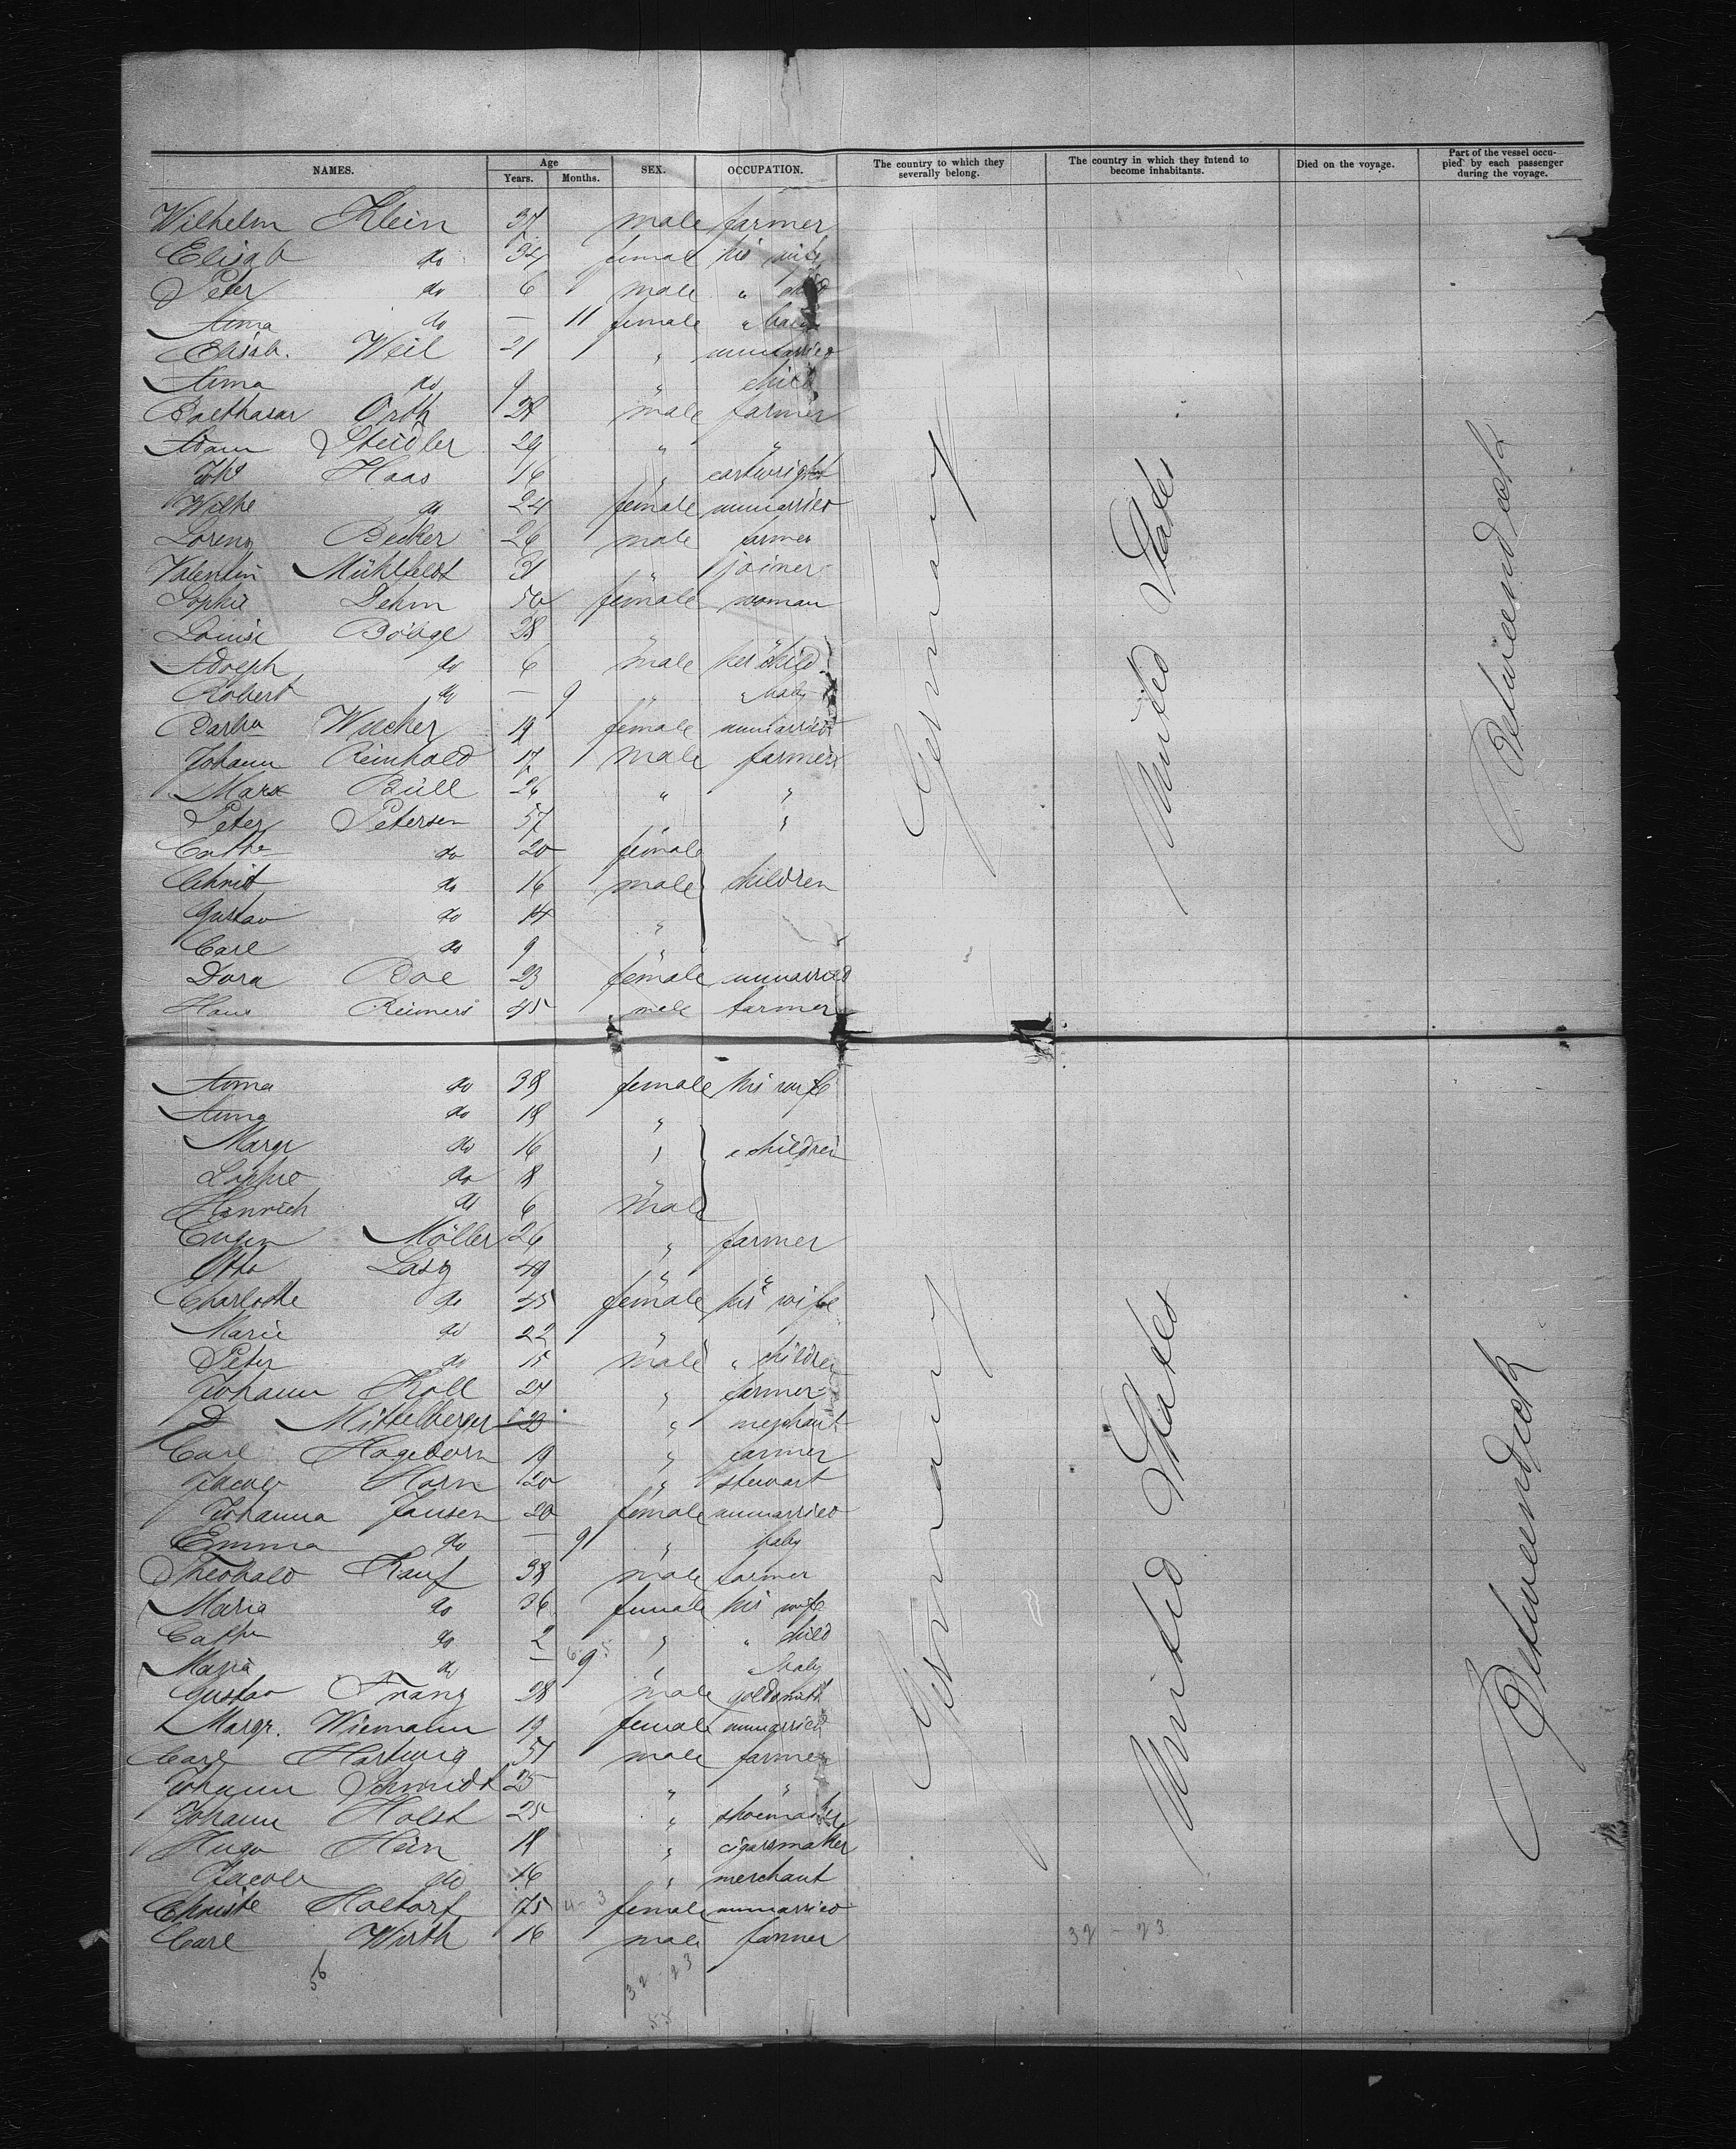 NAMES. Age Years. Months. SEX. OCCUPATION. The country to which they severally belong. The country in which they intend to become inhabitants. Died on the voyage. Part of the vessel occupied by each passenger during the voyage.
Wilhelm Klein 37 male farmer
Elisab do 34 female his wife
Peter do 6 male " child
Anna do — 11 female " baby
Elisab. Weil 21 " unmarried
Anna do 9 " child
Balthasar Orth 28 male farmer
Adam Steidler 29 " "
Haas 16 " cartwright
Wilhe do 24 female unmarried
Lorenz Becker 26 male farmer
Valentin Mühlfeldt 31 " joiner
Sophie Dehm 50 female woman
Louise 28 " "
Adolph do 6 male her child
Robert do — 9 " " baby
Barbra Wucher 19 female unmarried
Johann Reinhold 17 male farmer
Marx Büll 26 " "
Peter Petersen 57 " "
Cathe do 20 female
Christ do 16 male children
Gustav do 14 "
Carl do 9 "
Dora Boe 23 female unmarried
Hans Reimers 45 male farmer
Anna do 38 female his wife
Anna do 18 "
Margr do 16 " " children
Sophie do 8 "
Heinrich do 6 male
Eugen Möller 26 " farmer
Otto 49 " "
Charlotte do 45 female his wife
Marie do 22 "
Peter do 15 male " children
Johann Roll 24 " farmer
D Mittelberger 23 " merchant
Carl Hagedorn 19 " farmer
Jacob Horn 20 " stewart
Johanna Jansen 20 female unmarried
Emma do — 9 " baby
Theobald Rauf 38 male farmer
Maria do 36 female his wife
Cathr do 2 " " child
Maria do — 9 " " baby
Gustav Franz 28 male goldsmith
Margr. Wiemann 19 female unmarried
Carl Hartwig 51 male farmer
Johann Schmidt 25 " "
Johann Holst 25 " shoemaker
Hugo Hein 18 " cigarsmaker
Jacob do 16 " merchant
Christe Holtorf 75 female unmarried
Carl Wirth 16 male farmer
Germany United States Betweendeck
Germany United States Betweendeck
32 - 23
56
32 - 23
55